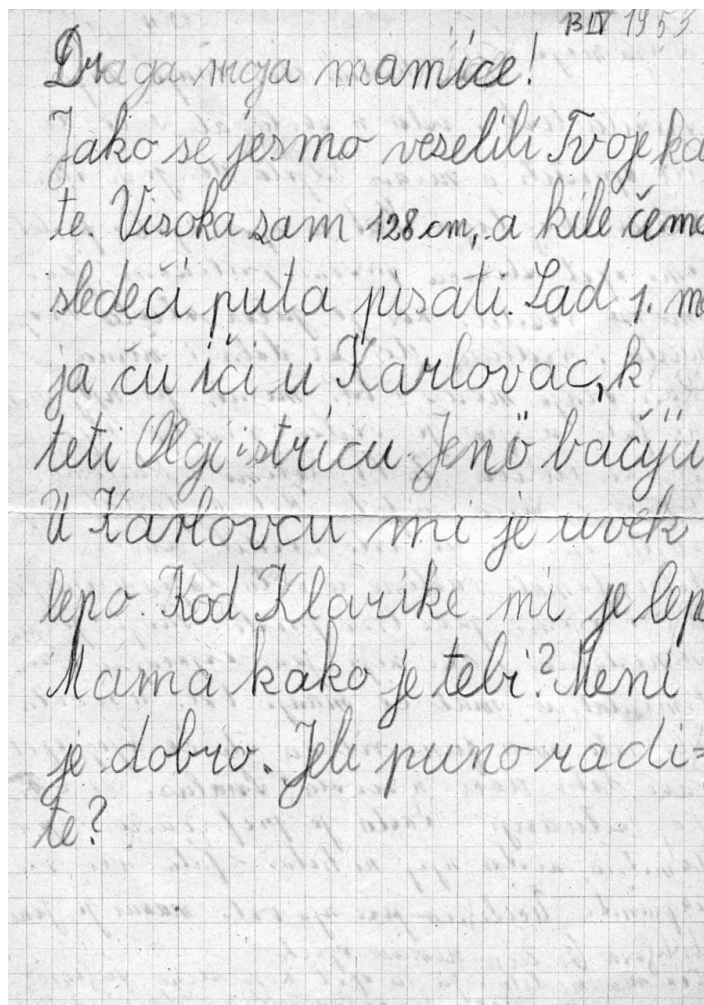 13 IV 1953
Draga moja mamice!
Jako se jesmo veselili Tvoje ka
te. Visoka sam 128 cm, a kile čemo
sledeci puta pisati. Sad 1. ma
ja ču iči u Karlovac, k
teti Olgi i stricu Jenö bačiju
U Karlovcu mi je uvek
lepo. Kod Klarike mi je lepo
Mama kako je tebi? Meni
je dobro. Jeli puno radi=
te?